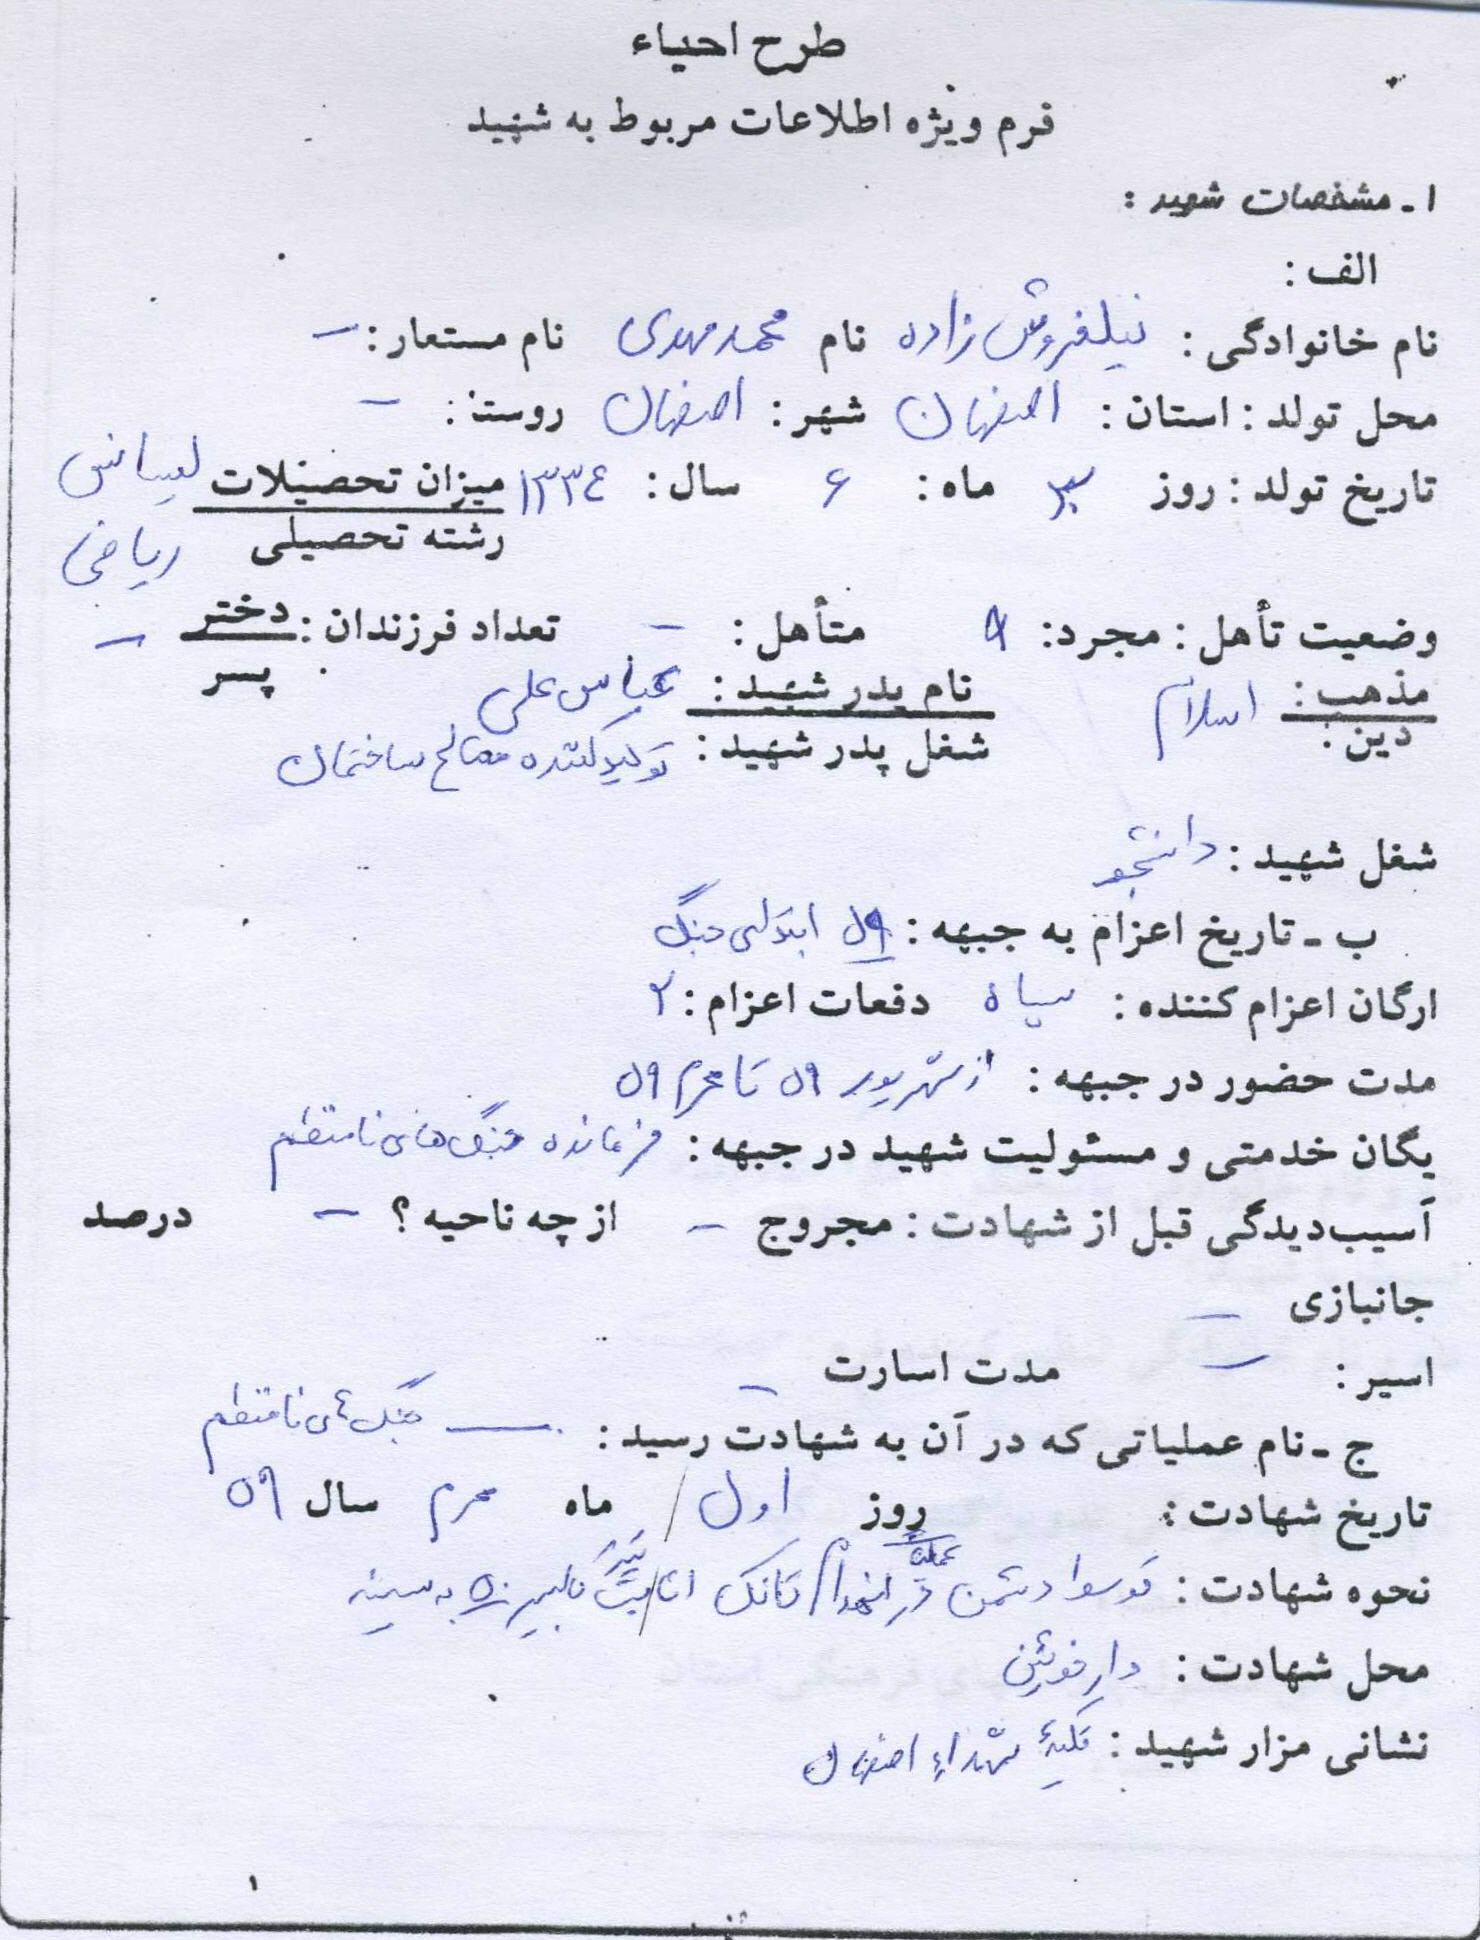 طرح احیاء
فرم ویژه اطلاعات مربوط به شهید
۱ ـ مشخصات شهید :
الف :
نام خانوادگی : نیلفروش زاده نام محمدمهدی نام مستعار : –
محل تولد : استان : اصفهان شهر : اصفهان روستا : –
تاریخ تولد : روز ۳ ماه : ۶ سال : ۱۳۳۴ میزان تحصیلات لیسانس
رشته تحصیلی ریاضی
وضعیت تأهل : مجرد : متأهل : – تعداد فرزندان : دختر –
پسر
مذهب : اسلام نام پدر شهید : عباس علی
دین : شغل پدر شهید : تولید کننده مصالح ساختمان
شغل شهید : دانشجو
ب ـ تاریخ اعزام به جبهه : ۵۹ ابتدای جنگ
ارگان اعزام کننده : سپاه دفعات اعزام : ۲
مدت حضور در جبهه : از شهریور ۵۹ تا محرم ۵۹
یگان خدمتی و مسئولیت شهید در جبهه : فرمانده جنگ های نامنظم
آسیب‌دیدگی قبل از شهادت : مجروح – از چه ناحیه ؟ – درصد
جانبازی –
اسیر : – مدت اسارت –
ج ـ نام عملیاتی که در آن به شهادت رسید : — جنگ های نامنظم
تاریخ شهادت : روز اول / ماه محرم سال ۵۹
نحوه شهادت : توسط دشمن در عملیات انهدام تانک اصابت تیر کالیبر ۵۰ به سینه
محل شهادت : دارخوئین
نشانی مزار شهید : تکیهٔ شهداء اصفهان
۱